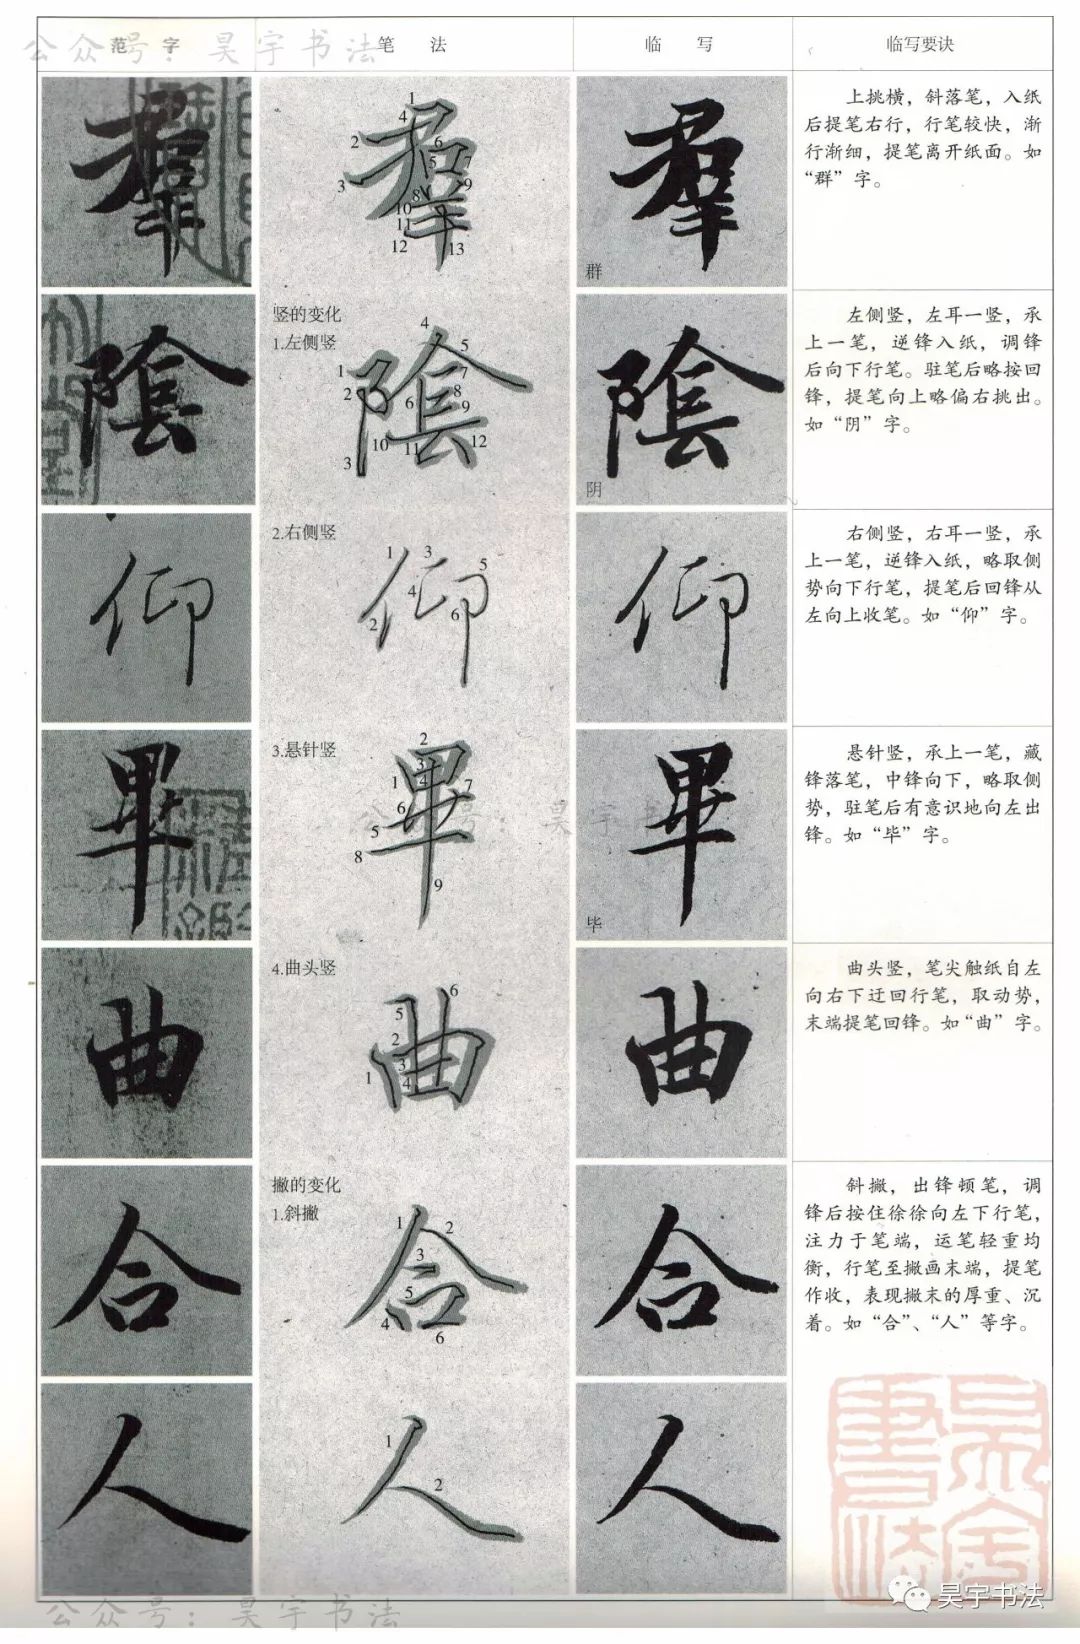 公众号：昊宇书法
范 字
笔 法
临 写
临写要诀
羣
1
4
2
6
5
7
3
8
9
10
11
12
13
羣
群
上挑横，斜落笔，入纸
后提笔右行，行笔较快，渐
行渐细，提笔离开纸面。如
“群”字。
陰
竖的变化
1.左侧竖
4
5
1
7
2
8
6
9
10
11
12
3
陰
阴
左侧竖，左耳一竖，承
上一笔，逆锋入纸，调锋
后向下行笔。驻笔后略按回
锋，提笔向上略偏右挑出。
如“阴”字。
仰
2.右侧竖
1
3
5
4
6
2
仰
右侧竖，右耳一竖，承
上一笔，逆锋入纸，略取侧
势向下行笔，提笔后回锋从
左向上收笔。如“仰”字。
畢
3.悬针竖
2
3
1
4
7
6
5
8
9
公众号：昊宇书
畢
毕
悬针竖，承上一笔，藏
锋落笔，中锋向下，略取侧
势，驻笔后有意识地向左出
锋。如“毕”字。
曲
4.曲头竖
6
5
2
3
1
4
曲
曲头竖，笔尖触纸自左
向右下迂回行笔，取动势，
末端提笔回锋。如“曲”字。
合
撇的变化
1.斜撇
1
2
3
5
4
6
合
斜撇，出锋顿笔，调
锋后按住徐徐向左下行笔，
注力于笔端，运笔轻重均
衡，行笔至撇画末端，提笔
作收，表现撇末的厚重、沉
着。如“合”、“人”等字。
人
1
2
人
昊宇書法
昊宇书法
公众号：昊宇书法